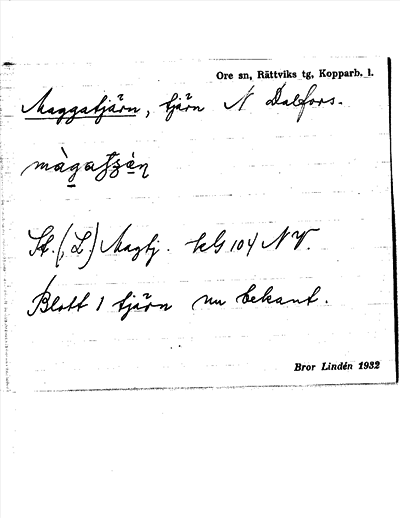 Ore sn, Rättviks tg, Kopparb. l.
Maggatjärn, tjärn N Dalfors.
St. (L) Magtj. kbl 104 NV.
Blott 1 tjärn nu bekant.
Bror Lindén 1932